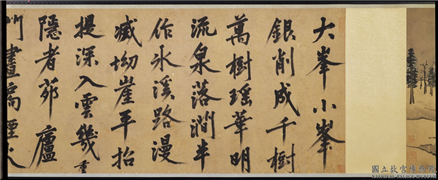 大峯小峯
銀削成千樹
萬樹瑤華明
流泉落澗半
作氷溪路漫
滅坳崖平招
提深入雲幾重
隱者茆廬
國立故宮博物院